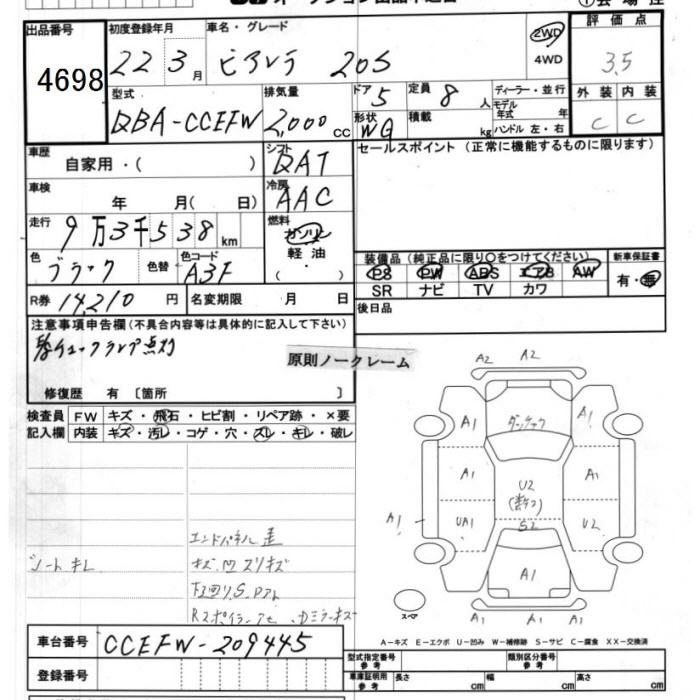 出品番号 4698
初度登録年月 22 3月
車名・グレード ビアンテ 20S
2WD
4WD
評価点 3.5
外装 内装
C C
型式 DBA-CCEFW
排気量 2,000 cc
ドア 5
形状 WG
定員 8 人
積載 kg
ディーラー・並行
モデル年式 年
ハンドル 左・右
車歴 自家用・( )
シフト DAT
車検 年 月( 日)
冷房 AAC
走行 9万3千538 km
燃料 ガソリン
軽油
( ・ )
色 ブラック 色替
色コード A3F
R券 14,210 円
名変期限 月 日
セールスポイント(正常に機能するものに限ります)
装備品(純正品に限り○をつけてください)
PS PW ABS エアB AW
SR ナビ TV カワ
新車保証書
有・無
後日品
注意事項申告欄(不具合内容等は具体的に記入して下さい)
チェックランプ点灯
修復歴 有〔箇所 〕
原則ノークレーム
検査員記入欄
FW キズ・飛石・ヒビ割・リペア跡・×要
内装 キズ・汚レ・コゲ・穴・スレ・キレ・破レ
シートキレ
エンドパネル歪
キズ 凹 スリキズ
A2 A2
A1 A1
A1 A1
A1 UA1 U2
U2
S2
A1
A1 A1 A1
スペア
A-キズ E-エクボ U-凹み W-補修跡 S-サビ C-腐食 XX-交換済
車台番号 CCEFW-209445
登録番号
型式指定番号 参考
類別区分番号 参考
車庫証明用 参考 長さ cm 幅 cm 高さ cm